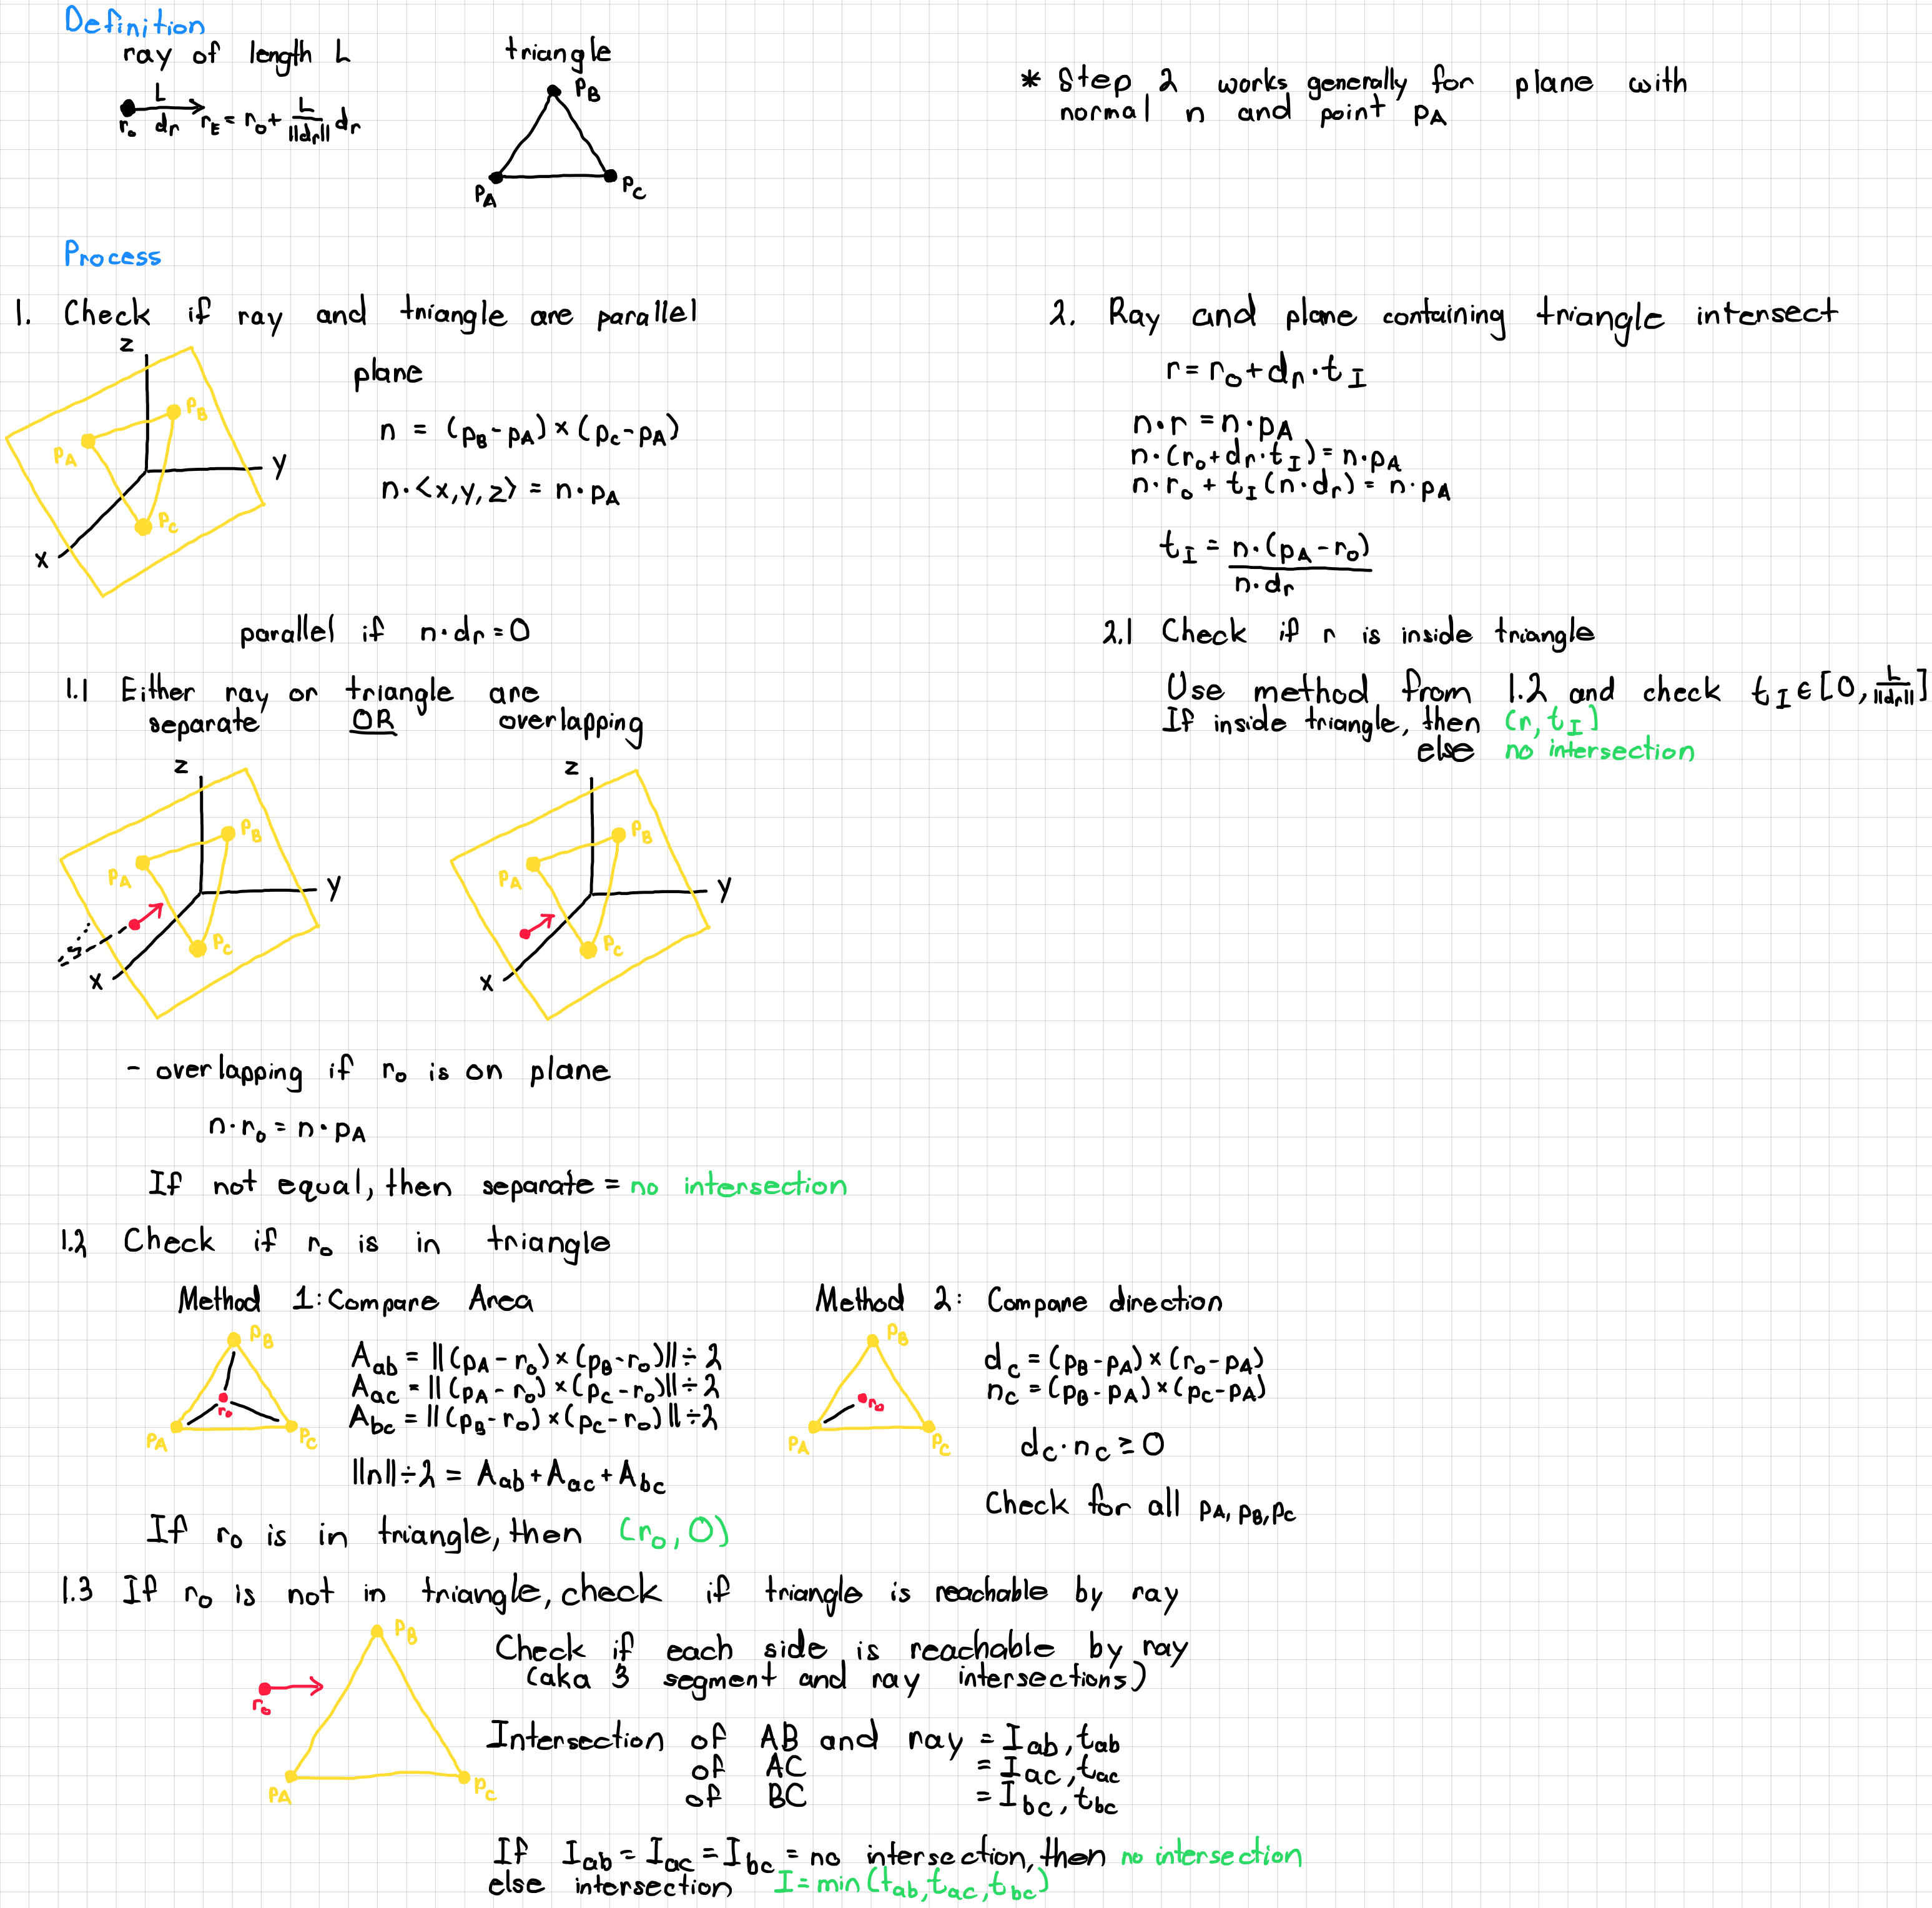 Definition
ray of length L
L
r₀ dᵣ r_E = r₀ + L/||dᵣ|| dᵣ
triangle
p_B
p_A
p_C
* Step 2 works generally for plane with
normal n and point p_A
Process
1. Check if ray and triangle are parallel
z
p_B
p_A
y
p_C
x
plane
n = (p_B - p_A) × (p_C - p_A)
n·<x,y,z> = n·p_A
parallel if n·dᵣ = 0
1.1 Either ray or triangle are
separate OR overlapping
z
p_B
p_A
y
p_C
x
z
p_B
p_A
y
p_C
x
- overlapping if r₀ is on plane
n·r₀ = n·p_A
If not equal, then separate = no intersection
1.2 Check if r₀ is in triangle
Method 1: Compare Area
p_B
r₀
p_A
p_C
A_ab = ||(p_A - r₀) × (p_B - r₀)|| ÷ 2
A_ac = ||(p_A - r₀) × (p_C - r₀)|| ÷ 2
A_bc = ||(p_B - r₀) × (p_C - r₀)|| ÷ 2
||n|| ÷ 2 = A_ab + A_ac + A_bc
Method 2: Compare direction
p_B
r₀
p_A
p_C
d_c = (p_B - p_A) × (r₀ - p_A)
n_c = (p_B - p_A) × (p_C - p_A)
d_c · n_c ≥ 0
Check for all p_A, p_B, p_C
If r₀ is in triangle, then (r₀, 0)
1.3 If r₀ is not in triangle, check if triangle is reachable by ray
p_B
r₀
p_A
p_C
Check if each side is reachable by ray
(aka 3 segment and ray intersections)
Intersection of AB and ray = I_ab, t_ab
of AC = I_ac, t_ac
of BC = I_bc, t_bc
If I_ab = I_ac = I_bc = no intersection, then no intersection
else intersection I = min(t_ab, t_ac, t_bc)
2. Ray and plane containing triangle intersect
r = r₀ + dᵣ · t_I
n·r = n·p_A
n·(r₀ + dᵣ·t_I) = n·p_A
n·r₀ + t_I(n·dᵣ) = n·p_A
t_I = n·(p_A - r₀) / n·dᵣ
2.1 Check if r is inside triangle
Use method from 1.2 and check t_I ∈ [0, L/||dᵣ||]
If inside triangle, then (r, t_I)
else no intersection